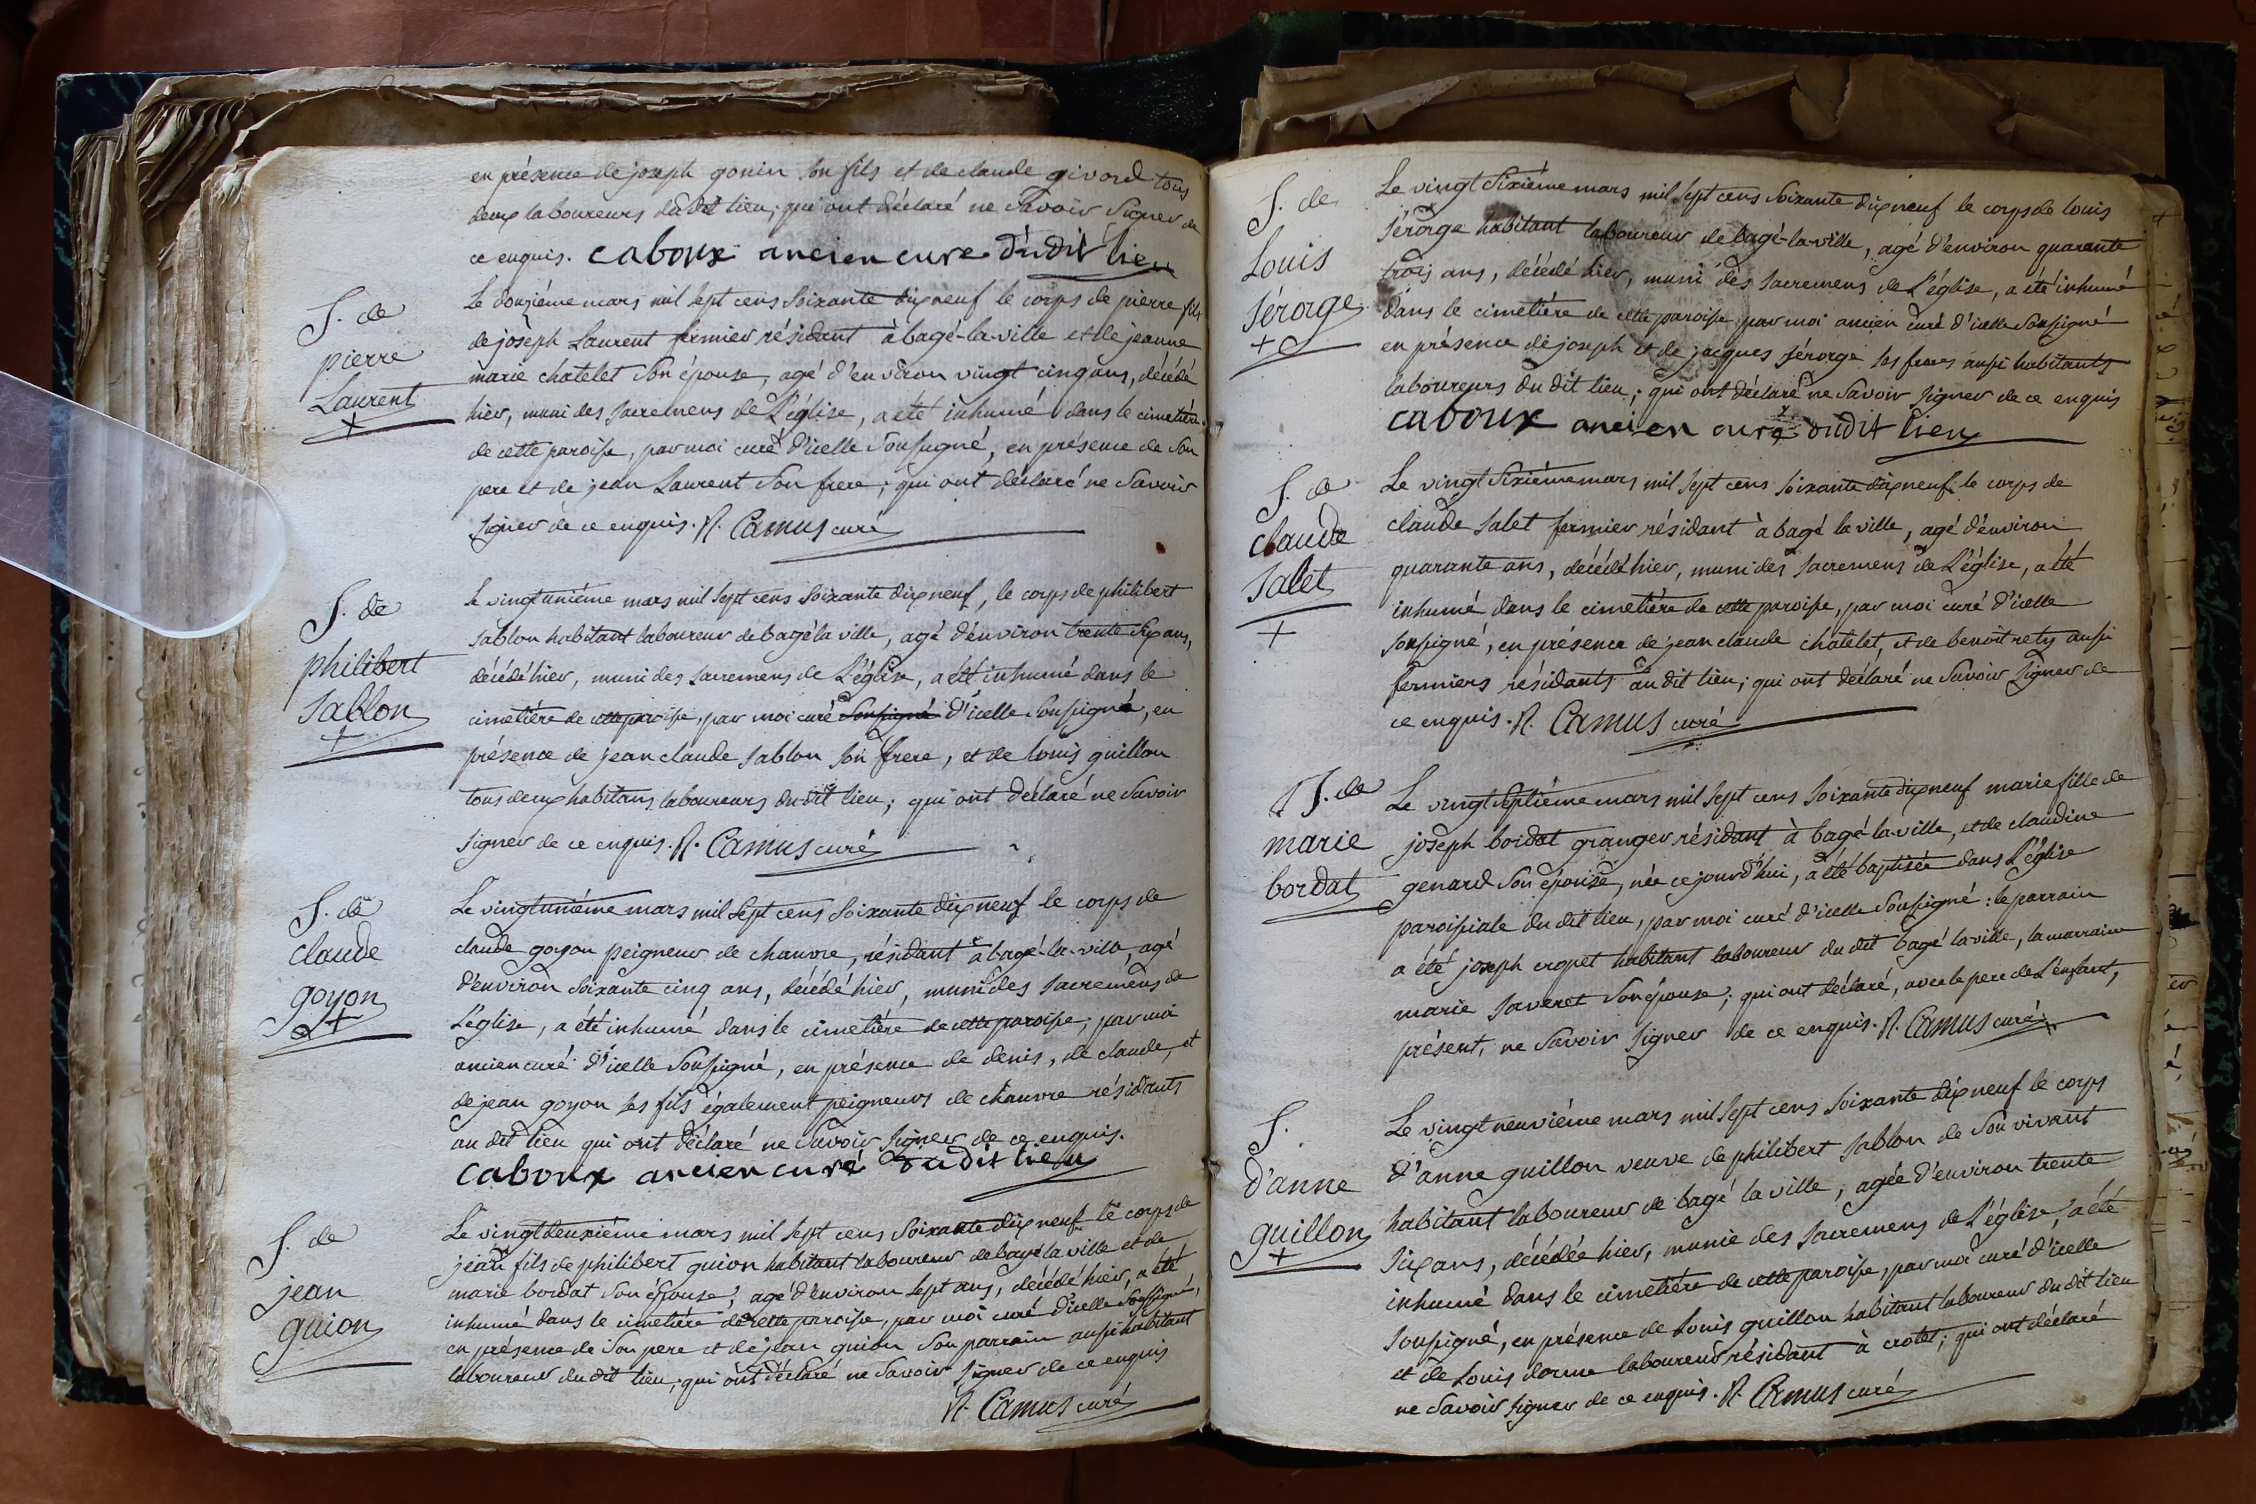 en présence de joseph gonin son fils et de claude givord tous
deux laboureurs du dit lieu; qui ont déclaré ne savoir signer de
ce enquis. caboux ancien curé du dit lieu
S. de
pierre
Laurent
Le douzième mars mil sept cens soixante dix neuf le corps de pierre fils
de joseph Laurent fermier résidant à bagé-la-ville et de jeanne
marie chatelet son épouse, agé d'environ vingt cinq ans, décédé
hier, muni des sacremens de L'église, a été inhumé dans le cimetière
de cette paroisse, par moi curé d'icelle soussigné, en présence de son
pere et de jean Laurent son frere; qui ont déclaré ne savoir
signer de ce enquis. N. Camus curé
S. de
philibert
sablon
Le vingtunième mars mil sept cens soixante dix neuf, le corps de philibert
sablon habitant laboureur de bagé la ville, agé d'environ trente six ans,
décédé hier, muni des sacremens de L'église, a été inhumé dans le
cimetière de cette paroisse, par moi curé soussigné d'icelle soussigné, en
présence de jean claude sablon son frere, et de louis guillon
tous deux habitans laboureurs du dit lieu; qui ont déclaré ne savoir
signer de ce enquis. N. Camus curé
S. de
claude
goyon
Le vingtunième mars mil sept cens soixante dix neuf le corps de
claude goyon peigneur de chanvre, résidant à bagé-la-ville, agé
d'environ soixante cinq ans, décédé hier, muni des sacremens de
L'église, a été inhumé dans le cimetière de cette paroisse; par moi
ancien curé d'icelle soussigné, en présence de denis, de claude, et
de jean goyon ses fils également peigneurs de chanvre résidants
au dit lieu qui ont déclaré ne savoir signer de ce enquis.
caboux ancien curé du dit lieu
S. de
jean
guion
Le vingtdeuxième mars mil sept cens soixante dix neuf le corps de
jean fils de philibert guion habitant laboureur de bagé la ville et de
marie bordat son épouse, agé d'environ sept ans, décédé hier, a été
inhumé dans le cimetière de cette paroisse, par moi curé d'icelle soussigné,
en présence de son pere et de jean guion son parrain aussi habitant
laboureur du dit lieu; qui ont déclaré ne savoir signer de ce enquis
N. Camus curé
S. de
Louis
sérorge
Le vingt sixième mars mil sept cens soixante dix neuf le corps de louis
sérorge habitant laboureur de bagé-la-ville, agé d'environ quarante
trois ans, décédé hier, muni des sacremens de L'église, a été inhumé
dans le cimetière de cette paroisse par moi ancien curé d'icelle soussigné
en présence de joseph et de jacques sérorge ses freres aussi habitants
laboureurs du dit lieu; qui ont déclaré ne savoir signer de ce enquis
caboux ancien curé dudit lieu
S. de
claude
salet
Le vingt sixième mars mil sept cens soixante dix neuf le corps de
claude salet fermier résidant à bagé la ville, agé d'environ
quarante ans, décédé hier, muni des sacremens de L'église, a été
inhumé dans le cimetière de cette paroisse, par moi curé d'icelle
soussigné, en présence de jean claude chatelet, et de benoît rety aussi
fermiers résidants au dit lieu; qui ont déclaré ne savoir signer de
ce enquis. N. Camus curé
S. de
marie
bordat
Le vingt septième mars mil sept cens soixante dix neuf marie fille de
joseph bordat granger résidant à bagé-la-ville, et de claudine
genard son épouse, née ce jourd'hui, a été baptisée dans L'église
paroissiale du dit lieu, par moi curé d'icelle soussigné: le parrain
a été joseph cropet habitant laboureur du dit bagé la ville, la marraine
marie saveret son épouse; qui ont déclaré, avec le pere de L'enfant,
présent, ne savoir signer de ce enquis. N. Camus curé
S.
d'anne
guillon
Le vingt neuvième mars mil sept cens soixante dix neuf le corps
d'anne guillon veuve de philibert sablon de son vivant
habitant laboureur de bagé la ville, agée d'environ trente
six ans, décédée hier, munie des sacremens de L'église, a été
inhumé dans le cimetière de cette paroisse, par moi curé d'icelle
soussigné, en présence de Louis guillon habitant laboureur du dit lieu
et de Louis dorme laboureur résidant à crotet; qui ont déclaré
ne savoir signer de ce enquis. N. Camus curé